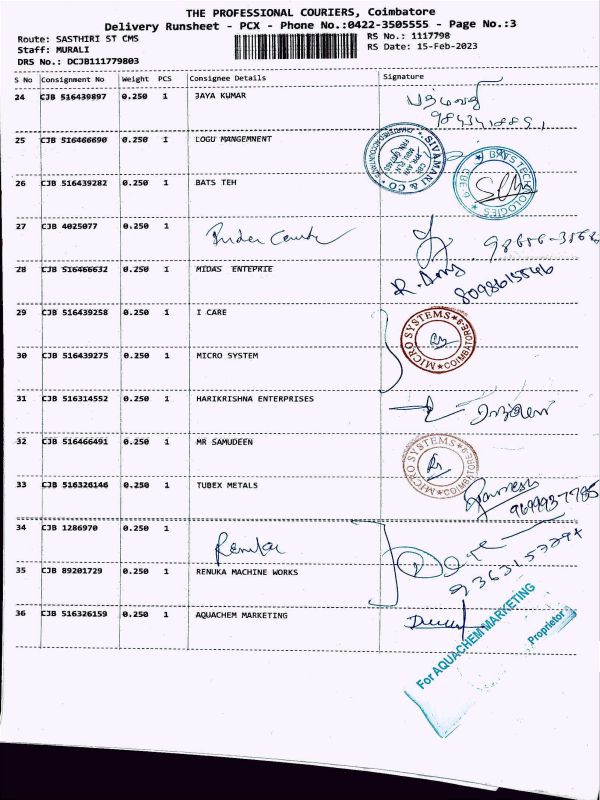 THE PROFESSIONAL COURIERS, Coimbatore
Delivery Runsheet - PCX - Phone No.:0422-3505555 - Page No.:3
Route: SASTHIRI ST CMS
RS No.: 1117798
Staff: MURALI
RS Date: 15-Feb-2023
DRS No.: DCJB111779803
S No Consignment No Weight PCS Consignee Details Signature
24 CJB 516439897 0.250 1 JAYA KUMAR
25 CJB 516466690 0.250 1 LOGU MANGEMNENT
SIVAMANI & CO
CHARTERED ACCOUNTANTS
26 CJB 516439282 0.250 1 BATS TEH
BATS TECHNOLOGIES
27 CJB 4025077 0.250 1
28 CJB 516466632 0.250 1 MIDAS ENTEPRIE
8098615546
29 CJB 516439258 0.250 1 I CARE
MICRO SYSTEMS COIMBATORE-9
30 CJB 516439275 0.250 1 MICRO SYSTEM
31 CJB 516314552 0.250 1 HARIKRISHNA ENTERPRISES
32 CJB 516466491 0.250 1 MR SAMUDEEN
MICRO SYSTEMS COIMBATORE-9
33 CJB 516326146 0.250 1 TUBEX METALS
34 CJB 1286970 0.250 1 Renuka
35 CJB 89201729 0.250 1 RENUKA MACHINE WORKS
36 CJB 516326159 0.250 1 AQUACHEM MARKETING
For AQUACHEM MARKETING
Proprietor